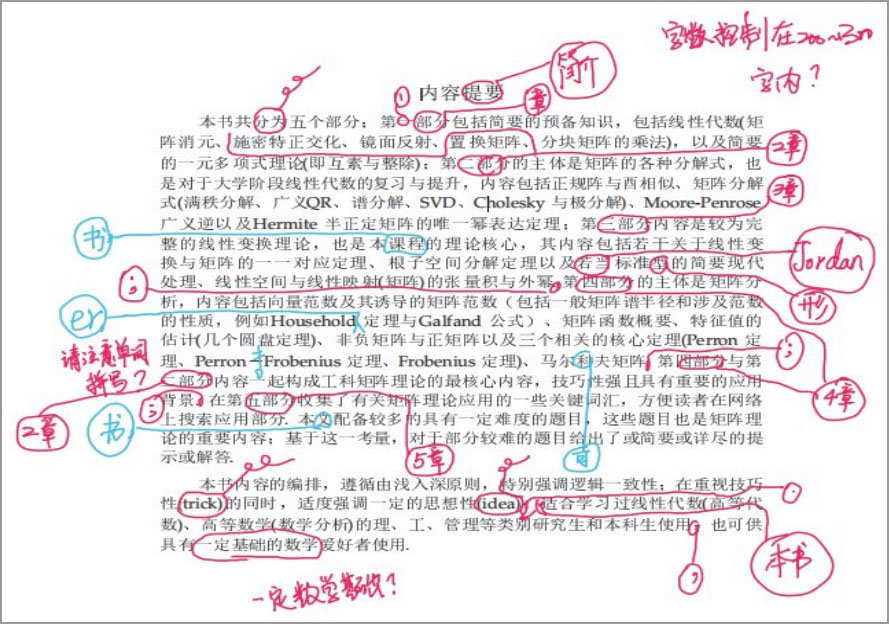 字数控制在200~300
字内？
简介
内容提要
① 章
本书共分为五个部分：第一部分包括简要的预备知识，包括线性代数(矩
阵消元、施密特正交化、镜面反射、置换矩阵、分块矩阵的乘法)，以及简要
2章
的一元多项式理论(即互素与整除)；第二部分的主体是矩阵的各种分解式，也
是对于大学阶段线性代数的复习与提升，内容包括正规阵与酉相似、矩阵分解
3章
式(满秩分解、广义QR、谱分解、SVD、Cholesky 与极分解)、Moore-Penrose
广义逆以及Hermite 半正定矩阵的唯一幂表达定理；第三部分内容是较为完
书
整的线性变换理论，也是本课程的理论核心，其内容包括若干关于线性变
换与矩阵的一一对应定理、根子空间分解定理以及若当标准型的简要现代
Jordan
处理、线性空间与线性映射(矩阵)的张量积与外幂.第四部分的主体是矩阵分
；
析，内容包括向量范数及其诱导的矩阵范数（包括一般矩阵谱半径和涉及范数
形
的性质，例如Household 定理与Galfand 公式）、矩阵函数概要、特征值的
er
估计(几个圆盘定理)、非负矩阵与正矩阵以及三个相关的核心定理(Perron 定
请注意单词
拼写？
理、Perron－Frobenius 定理、Frobenius 定理)、马尔科夫矩阵,第四部分与第
；
二部分内容一起构成工科矩阵理论的最核心内容，技巧性强且具有重要的应用
背景.在第五部分收集了有关矩阵理论应用的一些关键词汇，方便读者在网络
；
4章
2章
上搜索应用部分. 本文配备较多的具有一定难度的题目，这些题目也是矩阵理
书
论的重要内容；基于这一考量，对于部分较难的题目给出了或简要或详尽的提
5章
可
示或解答.
本书内容的编排，遵循由浅入深原则，特别强调逻辑一致性；在重视技巧
性(trick)的同时，适度强调一定的思想性(idea).适合学习过线性代数(高等代
数)、高等数学(数学分析)的理、工、管理等类别研究生和本科生使用，也可供
具有一定基础的数学爱好者使用.
本书
；
一定数学基础？